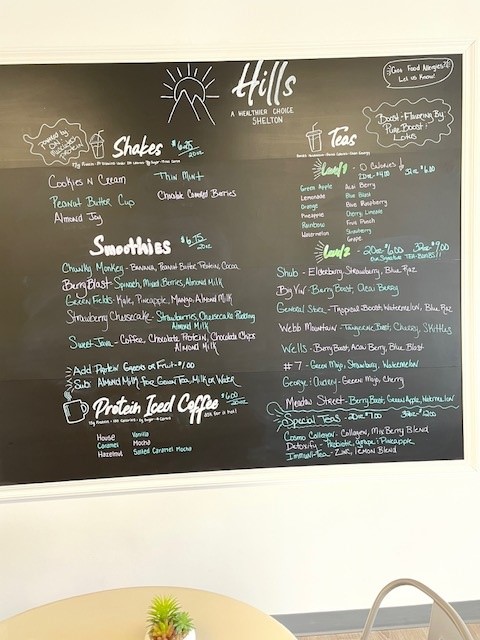 Hills
A WEALTHIER CHOICE
SHELTON
Got Food Allergies?
Let us Know!
powered by
PROTEIN
Shakes $6.75
20oz
Cookies N Cream
Peanut Butter Cup
Almond Joy
Thin Mint
Chocolate Covered Berries
Smoothies $6.75
20oz
Chunky Monkey - Banana, Peanut Butter, Protein, Cocoa
Berry Blast - Spinach, Mixed Berries, Almond Milk
Green Fields - Kale, Pineapple, Mango, Almond Milk
Strawberry Cheesecake - Strawberries, Cheesecake Pudding
Almond Milk
Sweet Java - Coffee, Chocolate Protein, Chocolate Chips
Almond Milk
Add Protein Greens or Fruit - $1.00
Sub: Almond Milk For Green Tea, Milk or Water
Protein Iced Coffee $6.00
20oz
House
Caramel
Hazelnut
Vanilla
Mocha
Salted Caramel Mocha
Teas
Boost - Flavoring By:
Pure Boost
Lotus
Level 1 - 0 Calories
20oz $4.00 32oz $6.00
Green Apple
Lemonade
Orange
Pineapple
Rainbow
Watermelon
Acai Berry
Blue Blast
Blue Raspberry
Cherry Limeade
Fruit Punch
Strawberry
Grape
Level 2 - 20oz $6.00 32oz $9.00
Our Signature TEA-BOMBS!!
Shub - Elderberry, Strawberry, Blue Raz
Big Vin - Berry Boost, Acai Berry
General Store - Tropical Boost, Watermelon, Blue Raz
Webb Mountain - Tangerine Boost, Cherry, Skittles
Wells - Berry Boost, Acai Berry, Blue Blast
#7 - Green Mojo, Strawberry, Watermelon
George - Green Mojo, Cherry
Meadow Street - Berry Boost, Green Apple, Watermelon
Special Teas - 20oz $7.00 32oz
Cosmo Collagen - Collagen, Mix Berry Blend
Detoxify - Probiotic, Grape & Pineapple
Immuni-Tea - Zinc, Lemon Blend